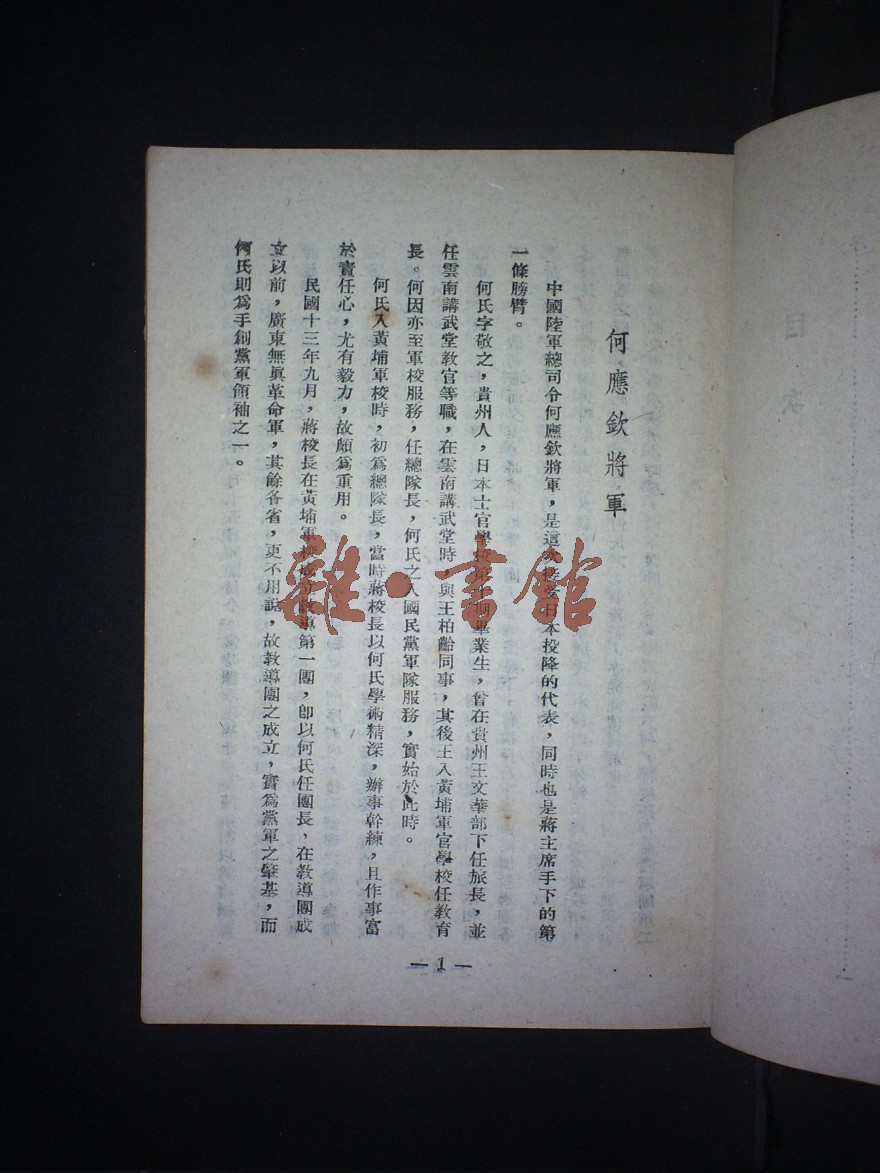 何應欽將軍
中國陸軍總司令何應欽將軍，是這次接受日本投降的代表，同時也是蔣主席手下的第
一條膀臂。
何氏字敬之，貴州人，日本士官學校第十期畢業生，曾在貴州王文華部下任旅長，並
任雲南講武堂教官等職，在雲南講武堂時，與王柏齡同事，其後王入黃埔軍官學校任教育
長。何因亦至軍校服務，任總隊長，何氏之入國民黨軍隊服務，實始於此時。
何氏入黃埔軍校時，初為總隊長，當時蔣校長以何氏學術精深，辦事幹練，且作事富
於責任心，尤有毅力，故頗為重用。
民國十三年九月，蔣校長在黃埔軍校成立教導第一團，卽以何氏任團長，在教導團成
立以前，廣東無眞革命軍，其餘各省，更不用說，故教導團之成立，實為黨軍之肇基，而
何氏則為手創黨軍領袖之一。
— 1 —
雜·書館
目 次